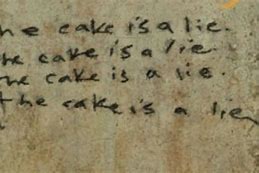 he cake is a lie.
he cake is a lie.
the cake is a lie.
the cake is a lie